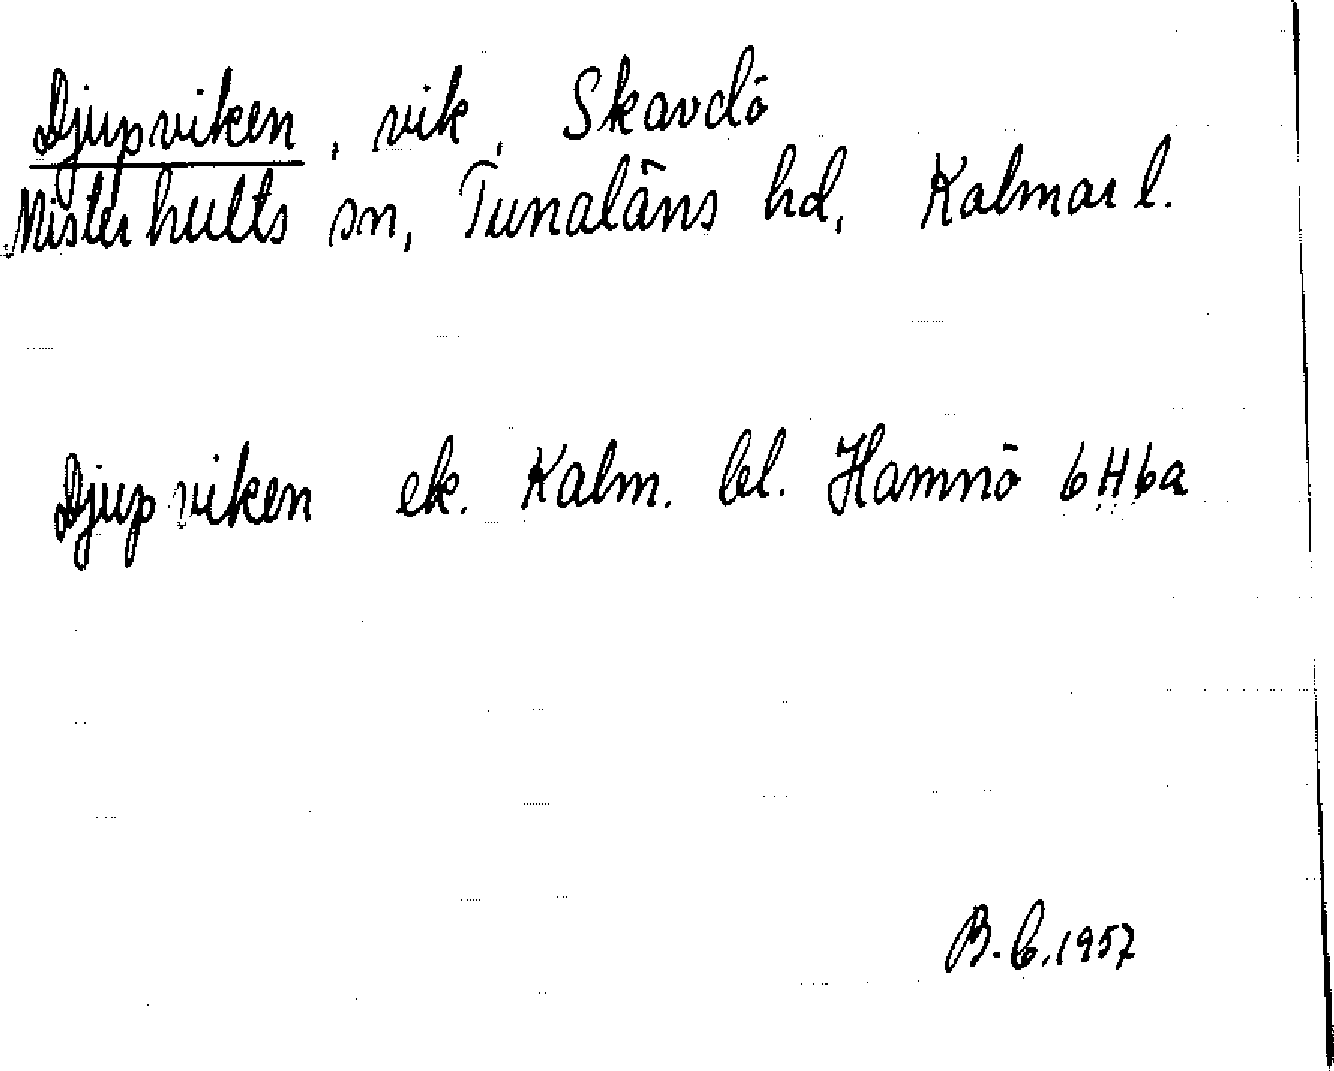 Djupviken, vik, Skavdö
Misterhults sn, Tunaläns hd, Kalmar l.
Djupviken ek. Kalm. bl. Hamnö 6H6a
B.C. 1957